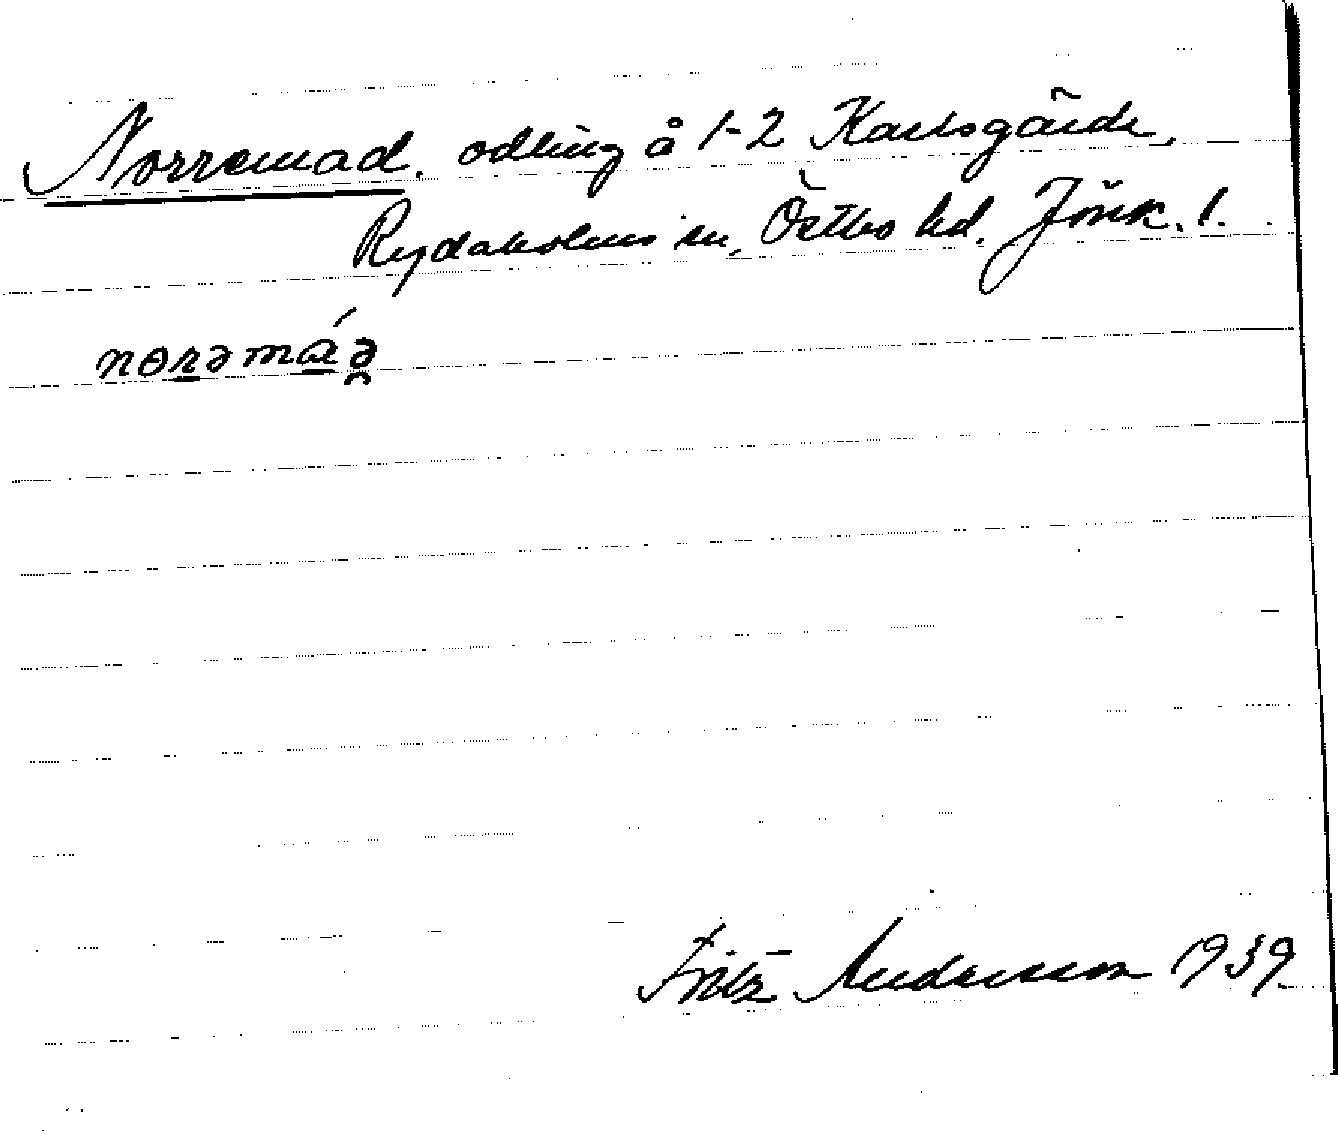 Norremad. odling å 1-2 Karlsgärde,
Rydaholms sn, Östbo hd. Jönk. l.
nɵrəmáə̯
Fritz Andersson 1939